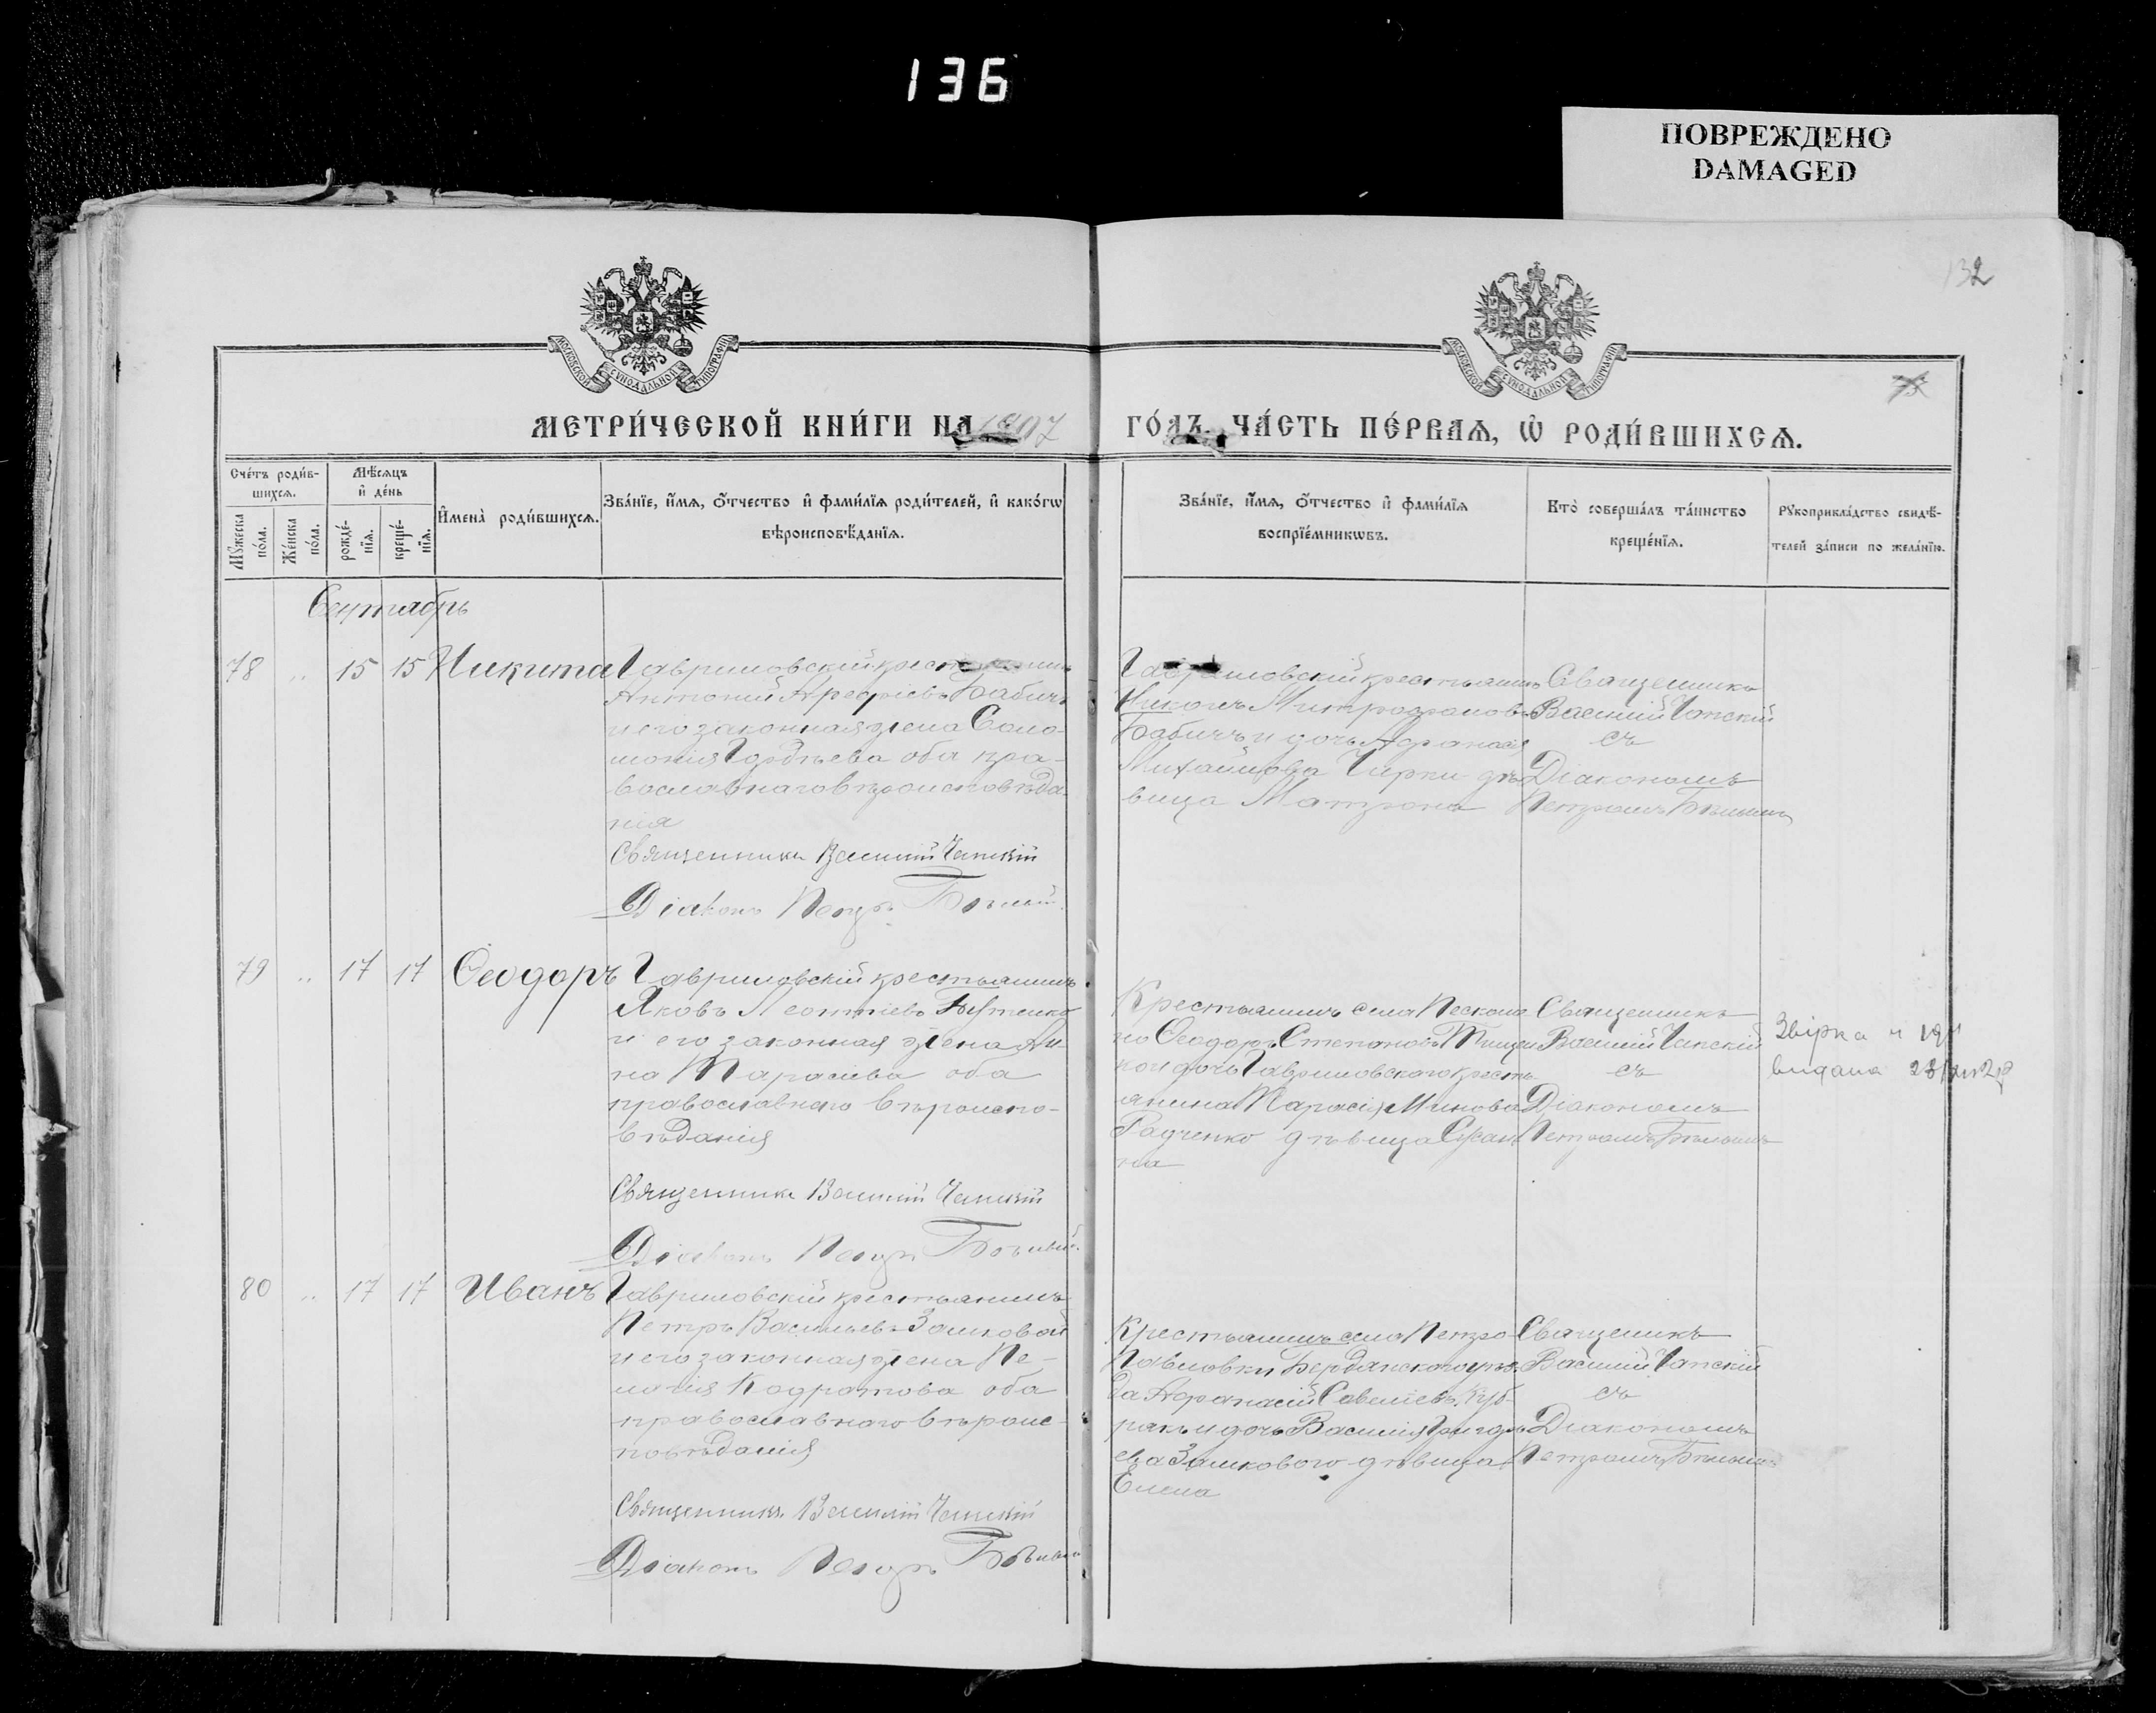 136
ПОВРЕЖДЕНО
DAMAGED
132
МОСКОВСКОЙ СУНОДАЛЬНОЙ ТИПОГРАФІИ
МОСКОВСКОЙ СУНОДАЛЬНОЙ ТИПОГРАФІИ
75
МЕТРИ́ЧЕСКОЙ КНИ́ГИ НА 1907
ГО́ДЪ, ЧА́СТЬ ПЕ́РВАЯ, Ѡ РОДИ́ВШИХСЯ.
Сче́тъ роди́в-
шихся.
Мꙋжеска по́ла.
Же́нска по́ла.
Мѣ́сяцъ
и де́нь
рожде́-
нїя.
креще́-
нїя.
Имена̀ роди́вшихся.
Зва́нїе, и́мя, о́тчество и фами́лїя роди́телей, и како́гѡ
вѣроисповѣ́данїя.
Зва́нїе, и́мя, о́тчество и фами́лїя
воспрїе́мникѡвъ.
Кто̀ соверша́лъ та́инство
креще́нїя.
Рꙋкоприкла́дство свидѣ́-
телей за́писи по жела́нїю.
Сентябрь
78 „ 15 15 Никита
Гавриловскій
Антоній Арефіевъ Бабичъ
и его законная жена Соло-
монія Гордѣева оба пра-
вославнаго вѣроисповѣда
нія
Священникъ Василій Чапскій
Діаконъ Петръ Бѣлый
Гавриловскій крестьянинъ
Никонъ Митрофановъ
Бабичъ и дочь Афанасія
Михайлова Чирки дѣ
вица Матрона
Священникъ
Василій Чапскій
съ
Діакономъ
Петромъ Бѣлымъ
79 „ 17 17 Ѳеодоръ
Гавриловскій крестьянинъ
Яковъ Леонтіевъ Бутенко
и его законная жена Ан-
на Тарасіева оба
православнаго вѣроиспо-
вѣданія
Священникъ Василій Чапскій
Діаконъ Петръ Бѣлый
Крестьянинъ села Песчана
го Ѳеодоръ Степановъ Тищен
ко и дочь Гавриловскаго кресть
янина Тарасія Минова
Радченко дѣвица Сусан
на
Священникъ
Василій Чапскій
съ
Діакономъ
Петромъ Бѣлымъ
Звірка ч
видана
80 „ 17 17 Иванъ
Гавриловскій крестьянинъ
Петръ Васильевъ Зашковой
и его законная жена Пе-
лагія Кодратова оба
православнаго вѣроис-
повѣданія
Священникъ Василій Чапскій
Діаконъ Петръ Бѣлый
Крестьянинъ села Петро-
Павловки Бердянскаго уѣз-
да Афанасій Савеліевъ Куб-
ракъ и дочь Василія Григорь
ева Зашкового дѣвица
Елена
Священникъ
Василій Чапскій
съ
Діакономъ
Петромъ Бѣлымъ